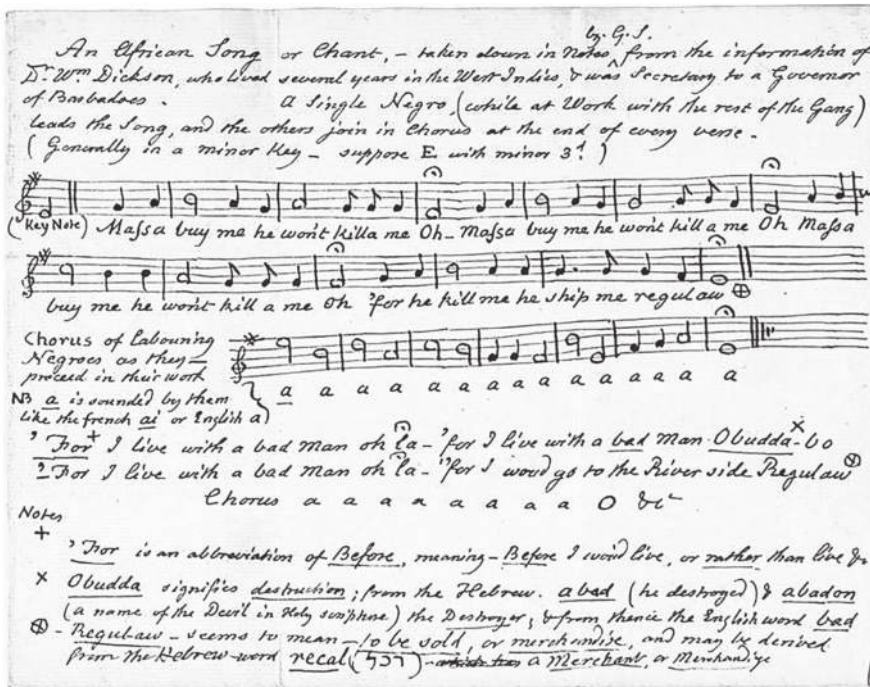 by G. S.
An African Song or Chant, – taken down in Notes from the information of
Dr. Wm Dickson, who lived several years in the West Indies, & was Secretary to a Governor
of Barbadoes. A Single Negro, (while at Work with the rest of the Gang)
leads the Song, and the others join in Chorus at the end of every verse.
(Generally in a minor Key – suppose E with minor 3d.)
(Key Note) Maſsa buy me he won't killa me Oh – Maſsa buy me he won't kill a me Oh Maſsa
buy me he won't kill a me Oh 'for he kill me he ship me regulaw ⊗
Chorus of Labouring
Negroes as they –
proceed in their work
a a a a a a a a a a a a
NB a is sounded by them
like the french ai or English a)
'For + I live with a bad man oh la – 'for I live with a bad man Obudda x – bo
'For I live with a bad man oh la – 'for I woud go to the River side Regulaw ⊗
Chorus a a a a a a a O &c
Notes
+ 'For is an abbreviation of Before, meaning – Before I woud live, or rather than live &c
x Obudda signifies destruction; from the Hebrew. abad (he destroyed) & abadon
(a name of the Devil in Holy scripture) the Destroyer, & from thence the English word bad
⊗ – Regulaw – seems to mean – to be sold, or merchandise, and may be derived
from the Hebrew word recal (רכל) a Merchant, or Merchandize